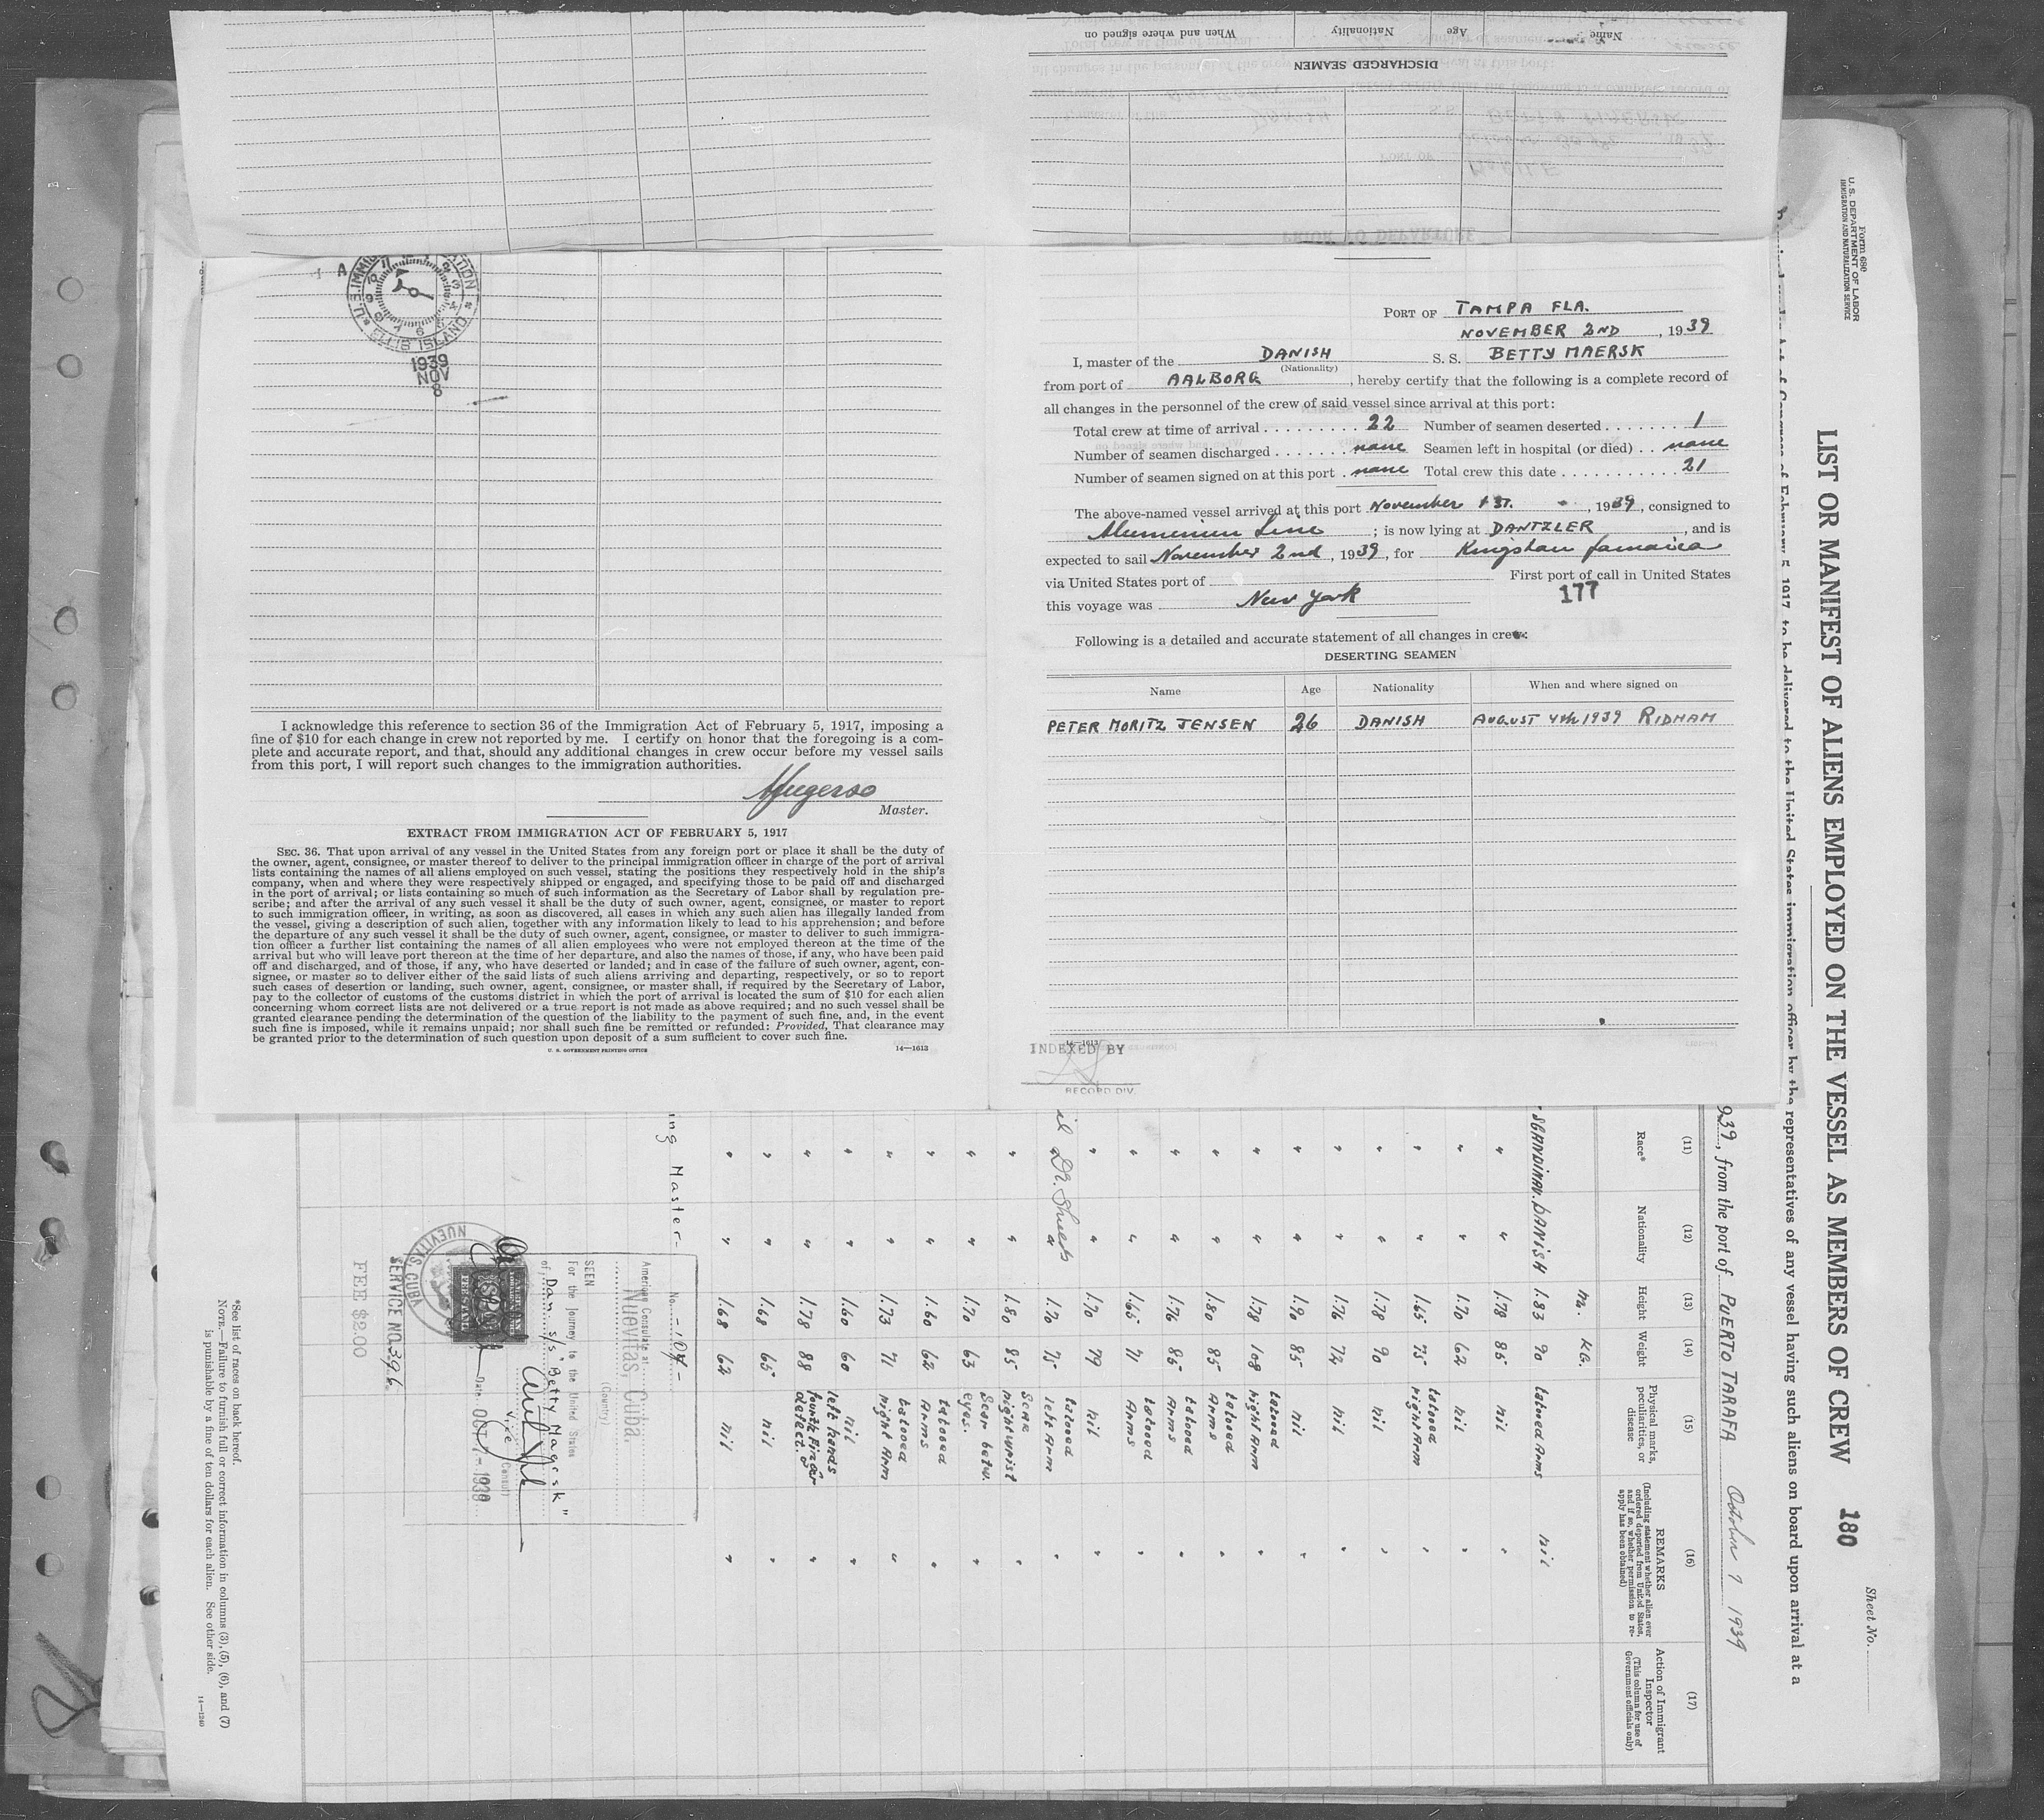 Name Age Nationality When and where signed on
DISCHARGED SEAMEN
PRIOR TO DEPARTURE
ELLIS ISLAND
1939
NOV
8
I acknowledge this reference to section 36 of the Immigration Act of February 5, 1917, imposing a
fine of $10 for each change in crew not reported by me. I certify on honor that the foregoing is a com-
plete and accurate report, and that, should any additional changes in crew occur before my vessel sails
from this port, I will report such changes to the immigration authorities.
Master.
EXTRACT FROM IMMIGRATION ACT OF FEBRUARY 5, 1917
SEC. 36. That upon arrival of any vessel in the United States from any foreign port or place it shall be the duty of
the owner, agent, consignee, or master thereof to deliver to the principal immigration officer in charge of the port of arrival
lists containing the names of all aliens employed on such vessel, stating the positions they respectively hold in the ship's
company, when and where they were respectively shipped or engaged, and specifying those to be paid off and discharged
in the port of arrival; or lists containing so much of such information as the Secretary of Labor shall by regulation pre-
scribe; and after the arrival of any such vessel it shall be the duty of such owner, agent, consignee, or master to report
to such immigration officer, in writing, as soon as discovered, all cases in which any such alien has illegally landed from
the vessel, giving a description of such alien, together with any information likely to lead to his apprehension; and before
the departure of any such vessel it shall be the duty of such owner, agent, consignee, or master to deliver to such immigra-
tion officer a further list containing the names of all alien employees who were not employed thereon at the time of the
arrival but who will leave port thereon at the time of her departure, and also the names of those, if any, who have been paid
off and discharged, and of those, if any, who have deserted or landed; and in case of the failure of such owner, agent, con-
signee, or master so to deliver either of the said lists of such aliens arriving and departing, respectively, or so to report
such cases of desertion or landing, such owner, agent, consignee, or master shall, if required by the Secretary of Labor,
pay to the collector of customs of the customs district in which the port of arrival is located the sum of $10 for each alien
concerning whom correct lists are not delivered or a true report is not made as above required; and no such vessel shall be
granted clearance pending the determination of the question of the liability to the payment of such fine, and, in the event
such fine is imposed, while it remains unpaid; nor shall such fine be remitted or refunded: Provided, That clearance may
be granted prior to the determination of such question upon deposit of a sum sufficient to cover such fine.
U. S. GOVERNMENT PRINTING OFFICE 14—1613
PORT OF TAMPA FLA.
NOVEMBER 2ND, 1939
I, master of the DANISH S. S. BETTY MAERSK
(Nationality)
from port of AALBORG, hereby certify that the following is a complete record of
all changes in the personnel of the crew of said vessel since arrival at this port:
Total crew at time of arrival . . . . . . . . . 22 Number of seamen deserted . . . . . . . 1
Number of seamen discharged . . . . . . none Seamen left in hospital (or died) . . none
Number of seamen signed on at this port . none Total crew this date . . . . . . . . . . . 21
The above-named vessel arrived at this port November 1st. , 1939, consigned to
Aluminium Line ; is now lying at DANTZLER, and is
expected to sail November 2nd, 1939, for Kingston Jamaica
via United States port of First port of call in United States
this voyage was New York 177
Following is a detailed and accurate statement of all changes in crew:
DESERTING SEAMEN
Name Age Nationality When and where signed on
PETER MORITZ JENSEN 26 DANISH AUGUST 4th 1939 RIDHAM
14—1613
INDEXED BY
RECORD DIV.
Form 680
U. S. DEPARTMENT OF LABOR
IMMIGRATION AND NATURALIZATION SERVICE
Sheet No.
LIST OR MANIFEST OF ALIENS EMPLOYED ON THE VESSEL AS MEMBERS OF CREW 180
of Congress of February 5, 1917, to be delivered to the United States immigration officer by the representatives of any vessel having such aliens on board upon arrival at a
939, from the port of PUERTO TARAFA October 7 1939
(11) (12) (13) (14) (15) (16) (17)
Race* Nationality Height Weight Physical marks, peculiarities, or disease
REMARKS
(Including statement whether alien ever ordered deported from United States, and if so, whether permission to re-apply has been obtained)
Action of Immigrant Inspector
(This column for use of Government officials only)
m. KG.
SCANDINAV. DANISH 1.83 90 tatooed Arms nil
" " 1.78 85 nil "
" " 1.70 62 nil "
" " 1.65 75 tatooed right Arm "
" " 1.78 90 nil "
" " 1.76 72 nil "
" " 1.90 85 nil "
" " 1.78 108 tatooed right Arm "
" " 1.80 85 tatooed Arms "
" " 1.76 85 tatooed Arms "
" " 1.65 71 tatooed Arms "
" " 1.70 79 nil "
" " 1.70 75 tatooed left Arm "
" " 1.80 85 Scar right wrist "
" " 1.70 63 Scar betw. eyes. "
" " 1.60 62 tatooed Arms "
" " 1.73 71 tatooed right Arm "
" " 1.60 60 nil "
" " 1.78 88 left hands fourth Finger defect. "
" " 1.68 65 nil "
" " 1.68 62 nil "
ing Master-
No. -104-
American Consulate at
Nuevitas, Cuba.
(Country)
SEEN
For the journey to the United States
of Dan. s/s "Betty Maersk"
Vice Consul
Date OCT 7- 1939
NUEVITAS, CUBA
SERVICE NO. 396
FEE $2.00
*See list of races on back hereof.
NOTE.—Failure to furnish full or correct information in columns (3), (5), (6), and (7)
is punishable by a fine of ten dollars for each alien. See other side.
14—1240